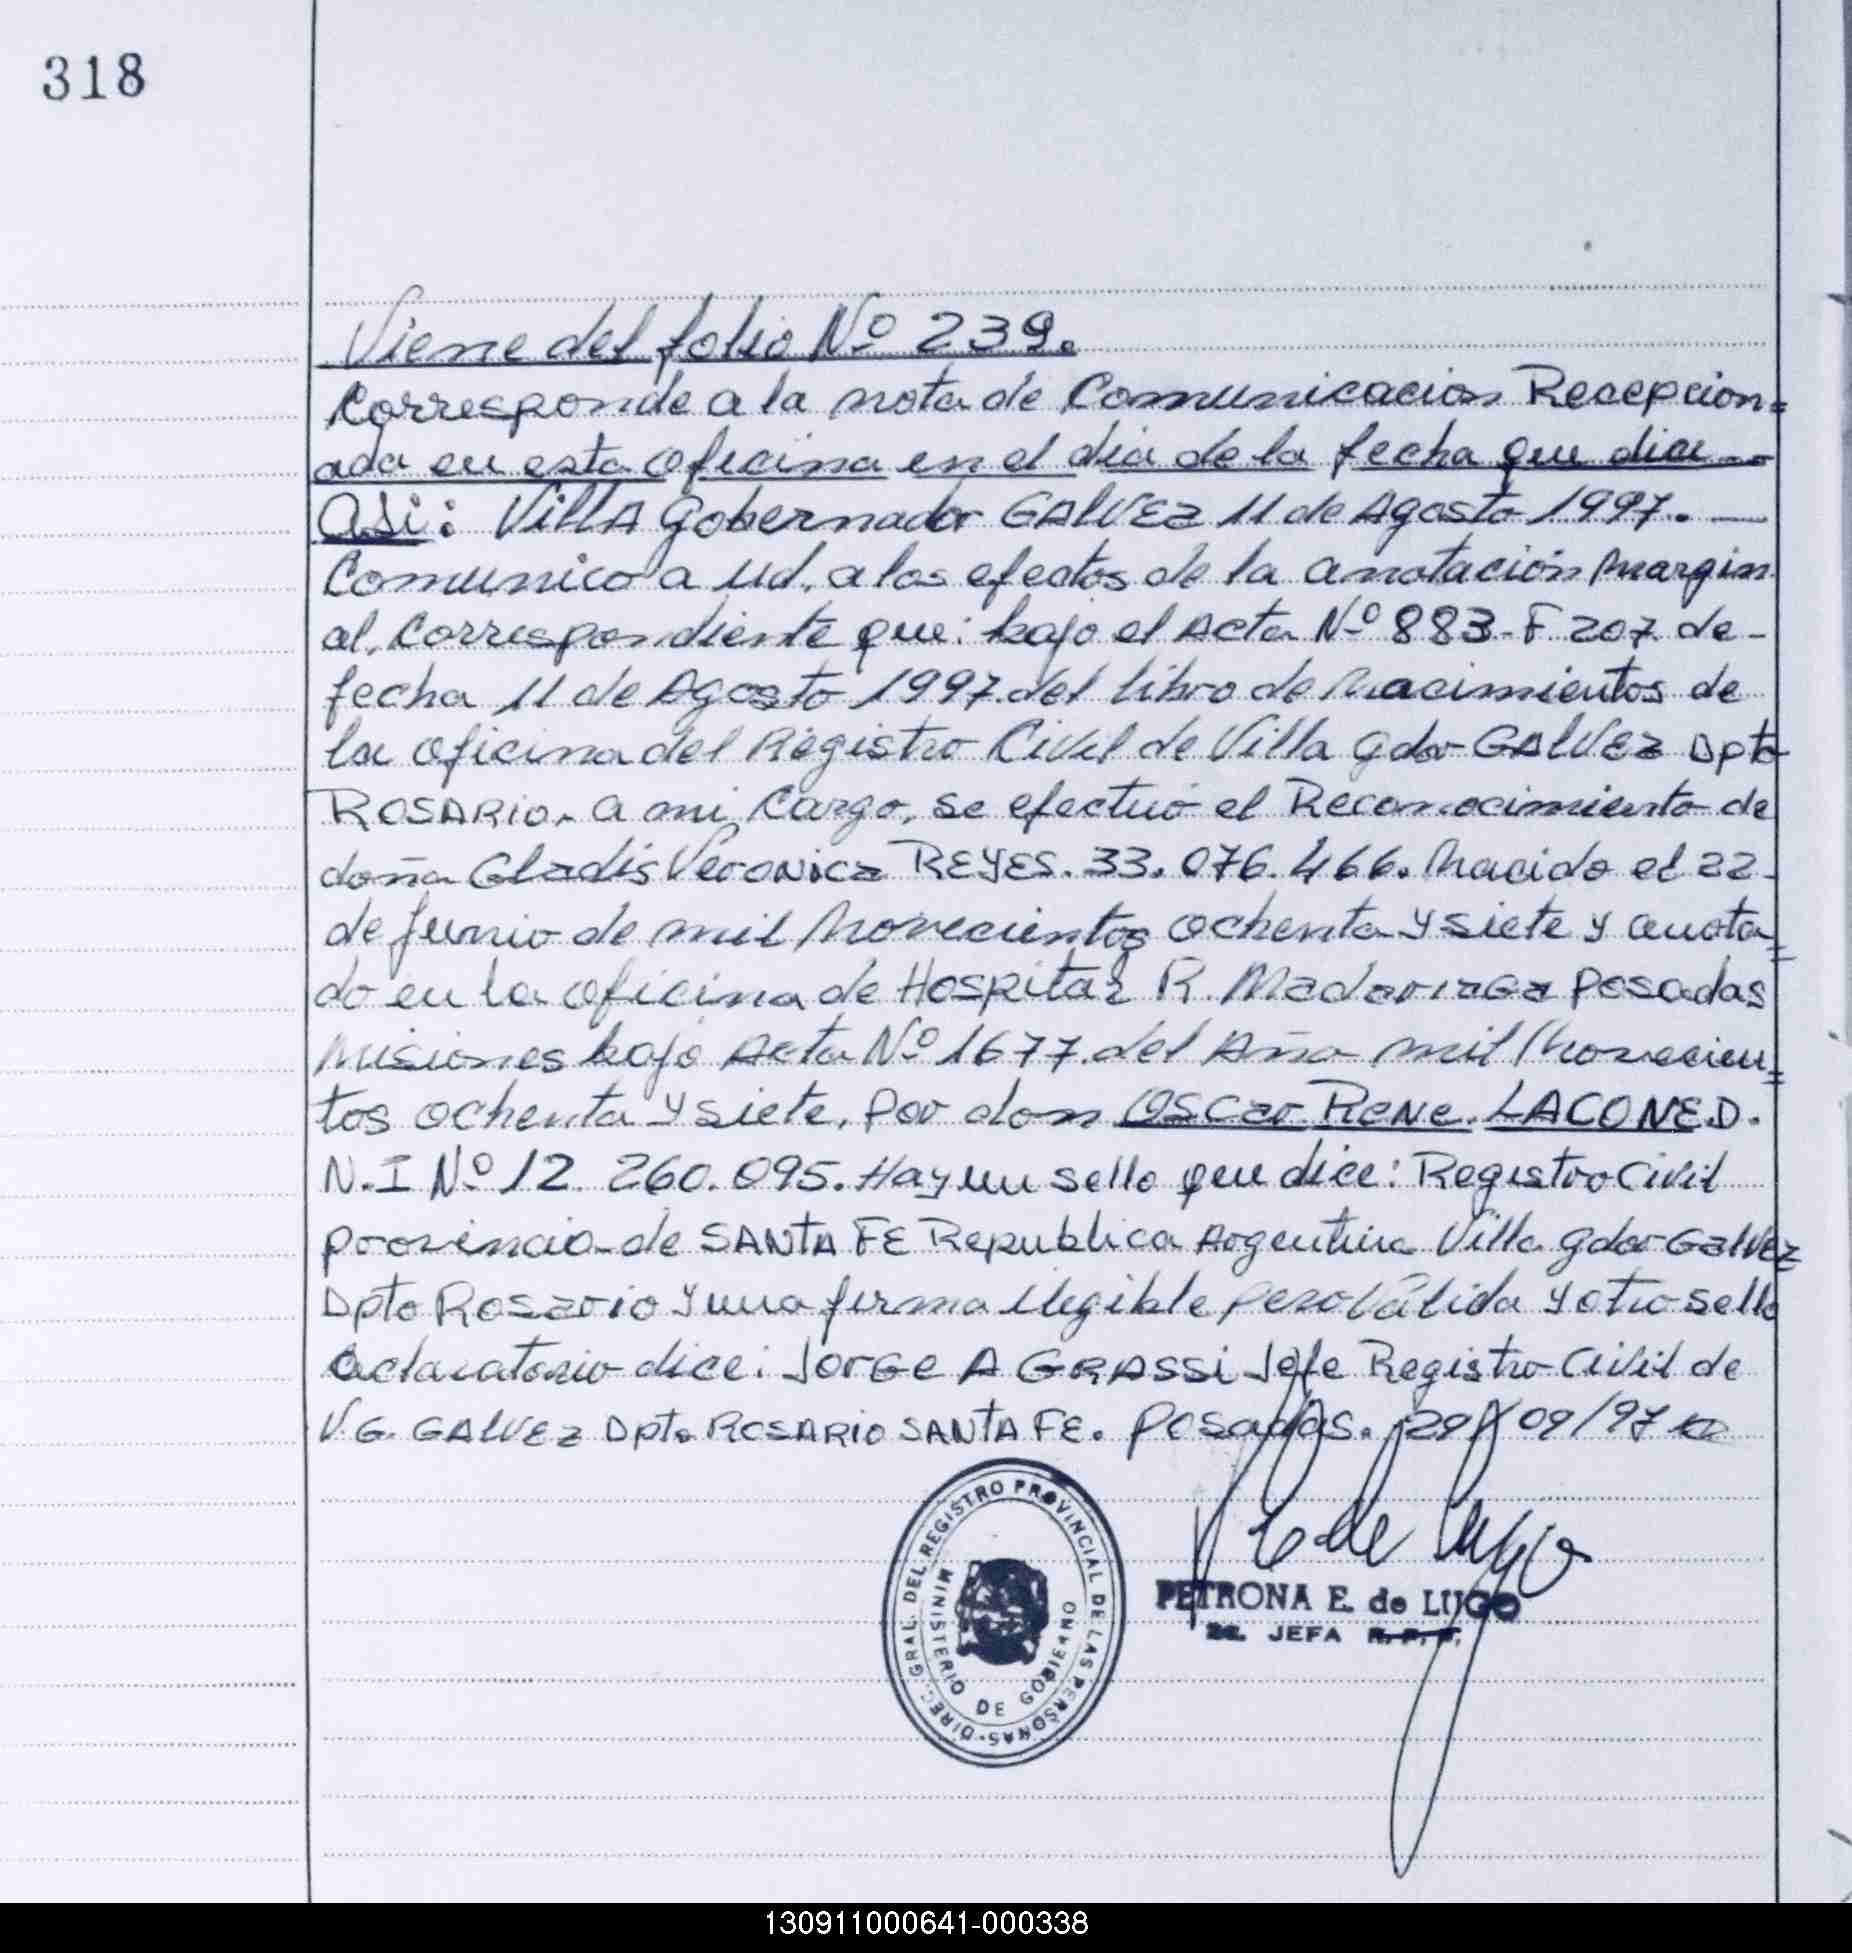 318
Viene del folio Nº 239.
Corresponde a la nota de Comunicacion Recepcion=
ada en esta oficina en el dia de la fecha que dice
asi: Villa Gobernador GALVEZ 11 de Agosto 1997. —
Comunico a Ud. a los efectos de la anotación margin
al, Correspondiente que: bajo el Acta Nº 883-F 207 de-
fecha 11 de Agosto 1997 del libro de Nacimientos de
la oficina del Registro Civil de Villa Gdor GALVEZ Dpto
ROSARIO. a mi Cargo, se efectuó el Reconocimiento de
doña Gladis Veronica REYES. 33.076.466. Nacido el 22-
de Junio de mil Novecientos ochenta y siete y anota=
do en la oficina de Hospital R. Madariaga Posadas
Misiones bajo Acta Nº 1677 del Año mil Novecien=
tos ochenta y siete, por don Oscar Rene LACONE. D.
N.I Nº 12.260.095. Hay un sello que dice: Registro Civil
provincia de SANTA FE Republica Argentina Villa Gdor Galvez
Dpto Rosario y una firma ilegible pero Válida y otro sello
aclaratorio dice: Jorge A GRASSI Jefe Registro Civil de
V.G. GALVEZ Dpto ROSARIO SANTA FE. Posadas. 29/09/97
DIREC. GRAL. DEL REGISTRO PROVINCIAL DE LAS PERSONAS-
MINISTERIO DE GOBIERNO
PETRONA E. de LUGO
JEFA
130911000641-000338